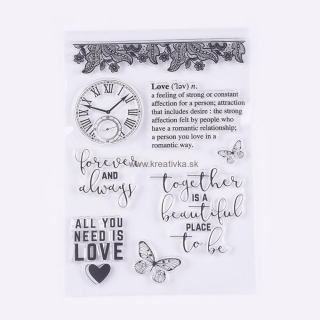 Love ('ləv) n.
a feeling of strong or constant
affection for a person; attraction
that includes desire : the strong
affection felt by people who
have a romantic relationship;
a person you love in a
romantic way.
www.kreativka.sk
forever
AND
always
together
IS A
beautiful
PLACE
to be
ALL YOU
NEED IS
LOVE